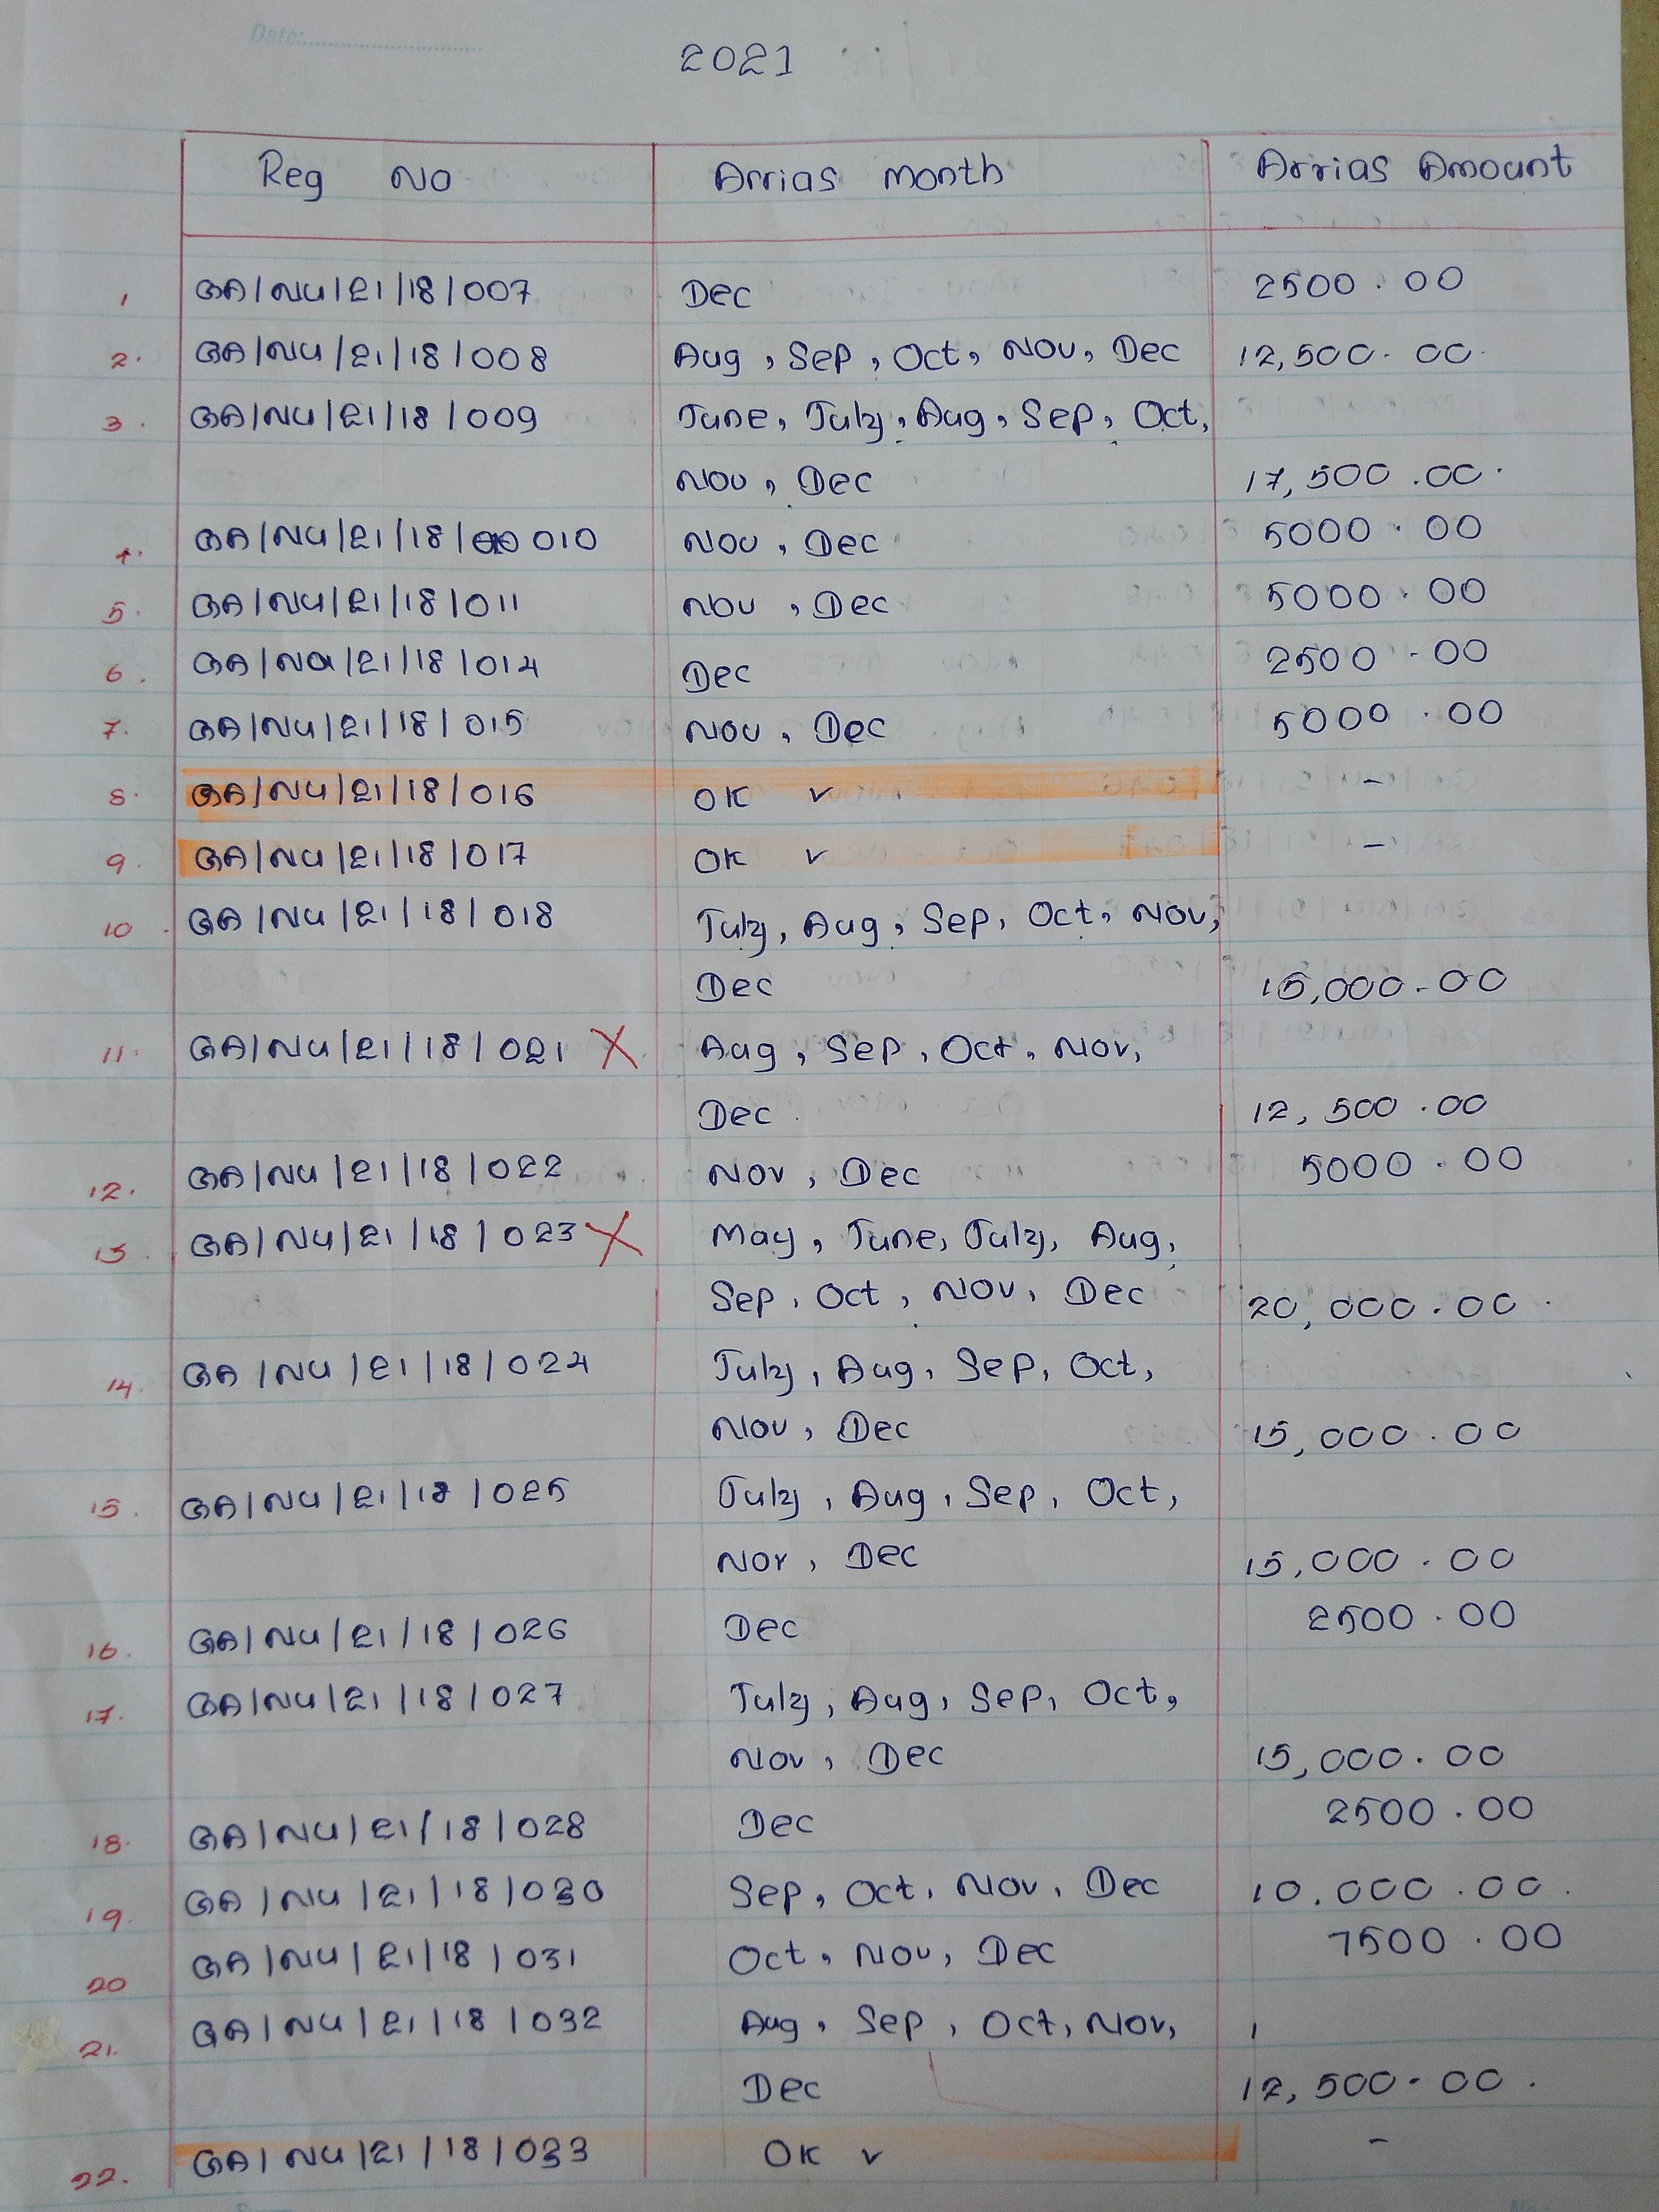 Date:
2021
Reg No Arrias month Arrias Amount
1 GA/NU/21/18/007 Dec 2500.00
2. GA/NU/21/18/008 Aug, Sep, Oct, Nov, Dec 12,500.00
3. GA/NU/21/18/009 June, July, Aug, Sep, Oct,
Nov, Dec 17,500.00
4. GA/NU/21/18/010 Nov, Dec 5000.00
5. GA/NU/21/18/011 Nov, Dec 5000.00
6. GA/NU/21/18/014 Dec 2500.00
7. GA/NU/21/18/015 Nov, Dec 5000.00
8. GA/NU/21/18/016 OK ✓ -
9. GA/NU/21/18/017 OK ✓ -
10. GA/NU/21/18/018 July, Aug, Sep, Oct, Nov,
Dec 15,000.00
11. GA/NU/21/18/021 X Aug, Sep, Oct, Nov,
Dec 12,500.00
12. GA/NU/21/18/022 Nov, Dec 5000.00
13. GA/NU/21/18/023 X May, June, July, Aug,
Sep, Oct, Nov, Dec 20,000.00
14. GA/NU/21/18/024 July, Aug, Sep, Oct,
Nov, Dec 15,000.00
15. GA/NU/21/18/025 July, Aug, Sep, Oct,
Nov, Dec 15,000.00
16. GA/NU/21/18/026 Dec 2500.00
17. GA/NU/21/18/027 July, Aug, Sep, Oct,
Nov, Dec 15,000.00
18. GA/NU/21/18/028 Dec 2500.00
19. GA/NU/21/18/030 Sep, Oct, Nov, Dec 10.000.00.
20 GA/NU/21/18/031 Oct, Nov, Dec 7500.00
21. GA/NU/21/18/032 Aug, Sep, Oct, Nov,
Dec 12,500.00.
22. GA/NU/21/18/033 OK ✓ -